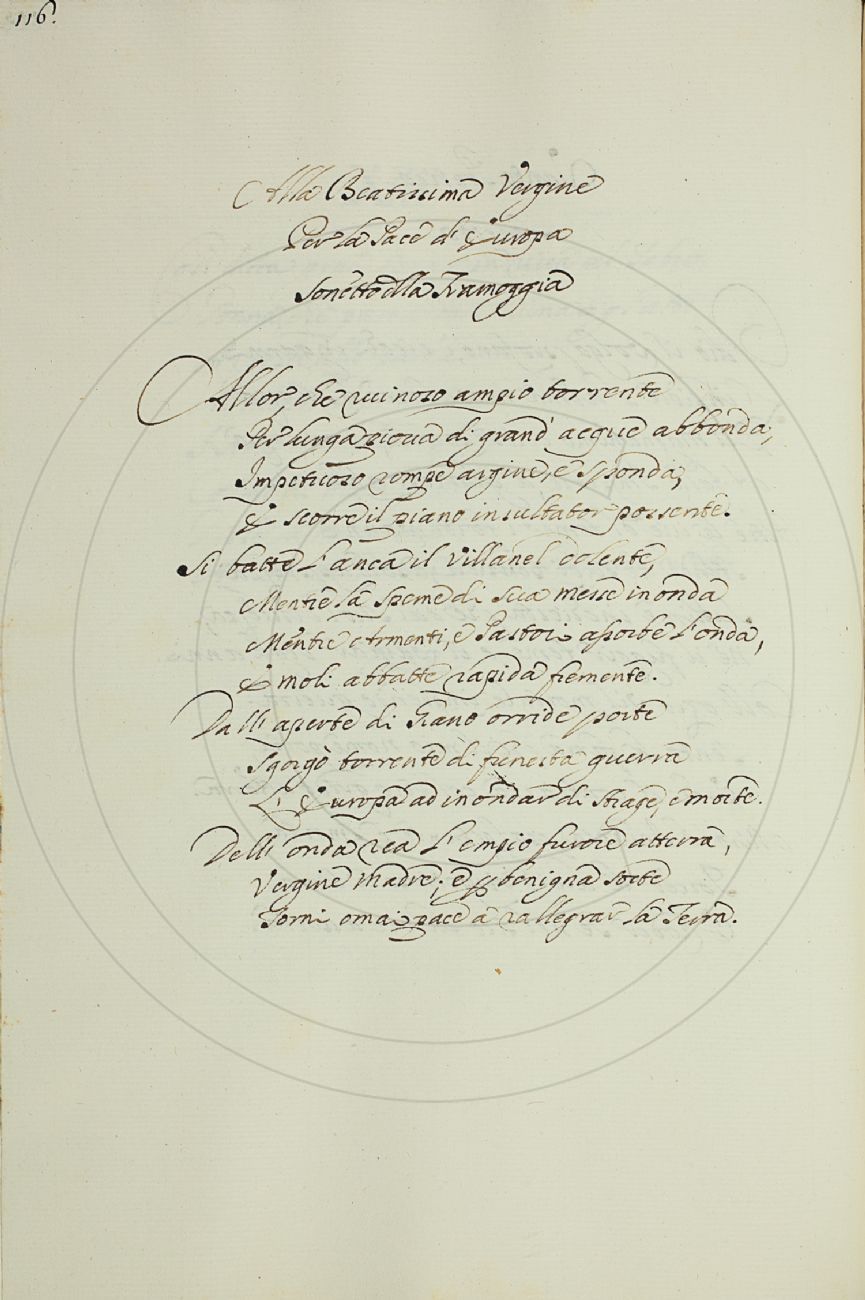 116.
Alla Beatissima Vergine
Per la Pace d' Europa
Sonetto della Tramoggia
Allor, che ruinoso ampio torrente
Per lunga piova di grand' acque abbonda,
Impetuoso rompe argine, e sponda,
E scorre il piano insultator possente.
Si batte l' anca il Villanel dolente,
Mentre la speme di sua messe inonda
Mentre Armenti, e Pastori asorbe l' onda,
E moli abbatte rapida fremente.
Dall' aperte di Giano orride porte
Sgorgò torrente di funesta guerra
L' Europa ad inondar di strage, e morte.
Dell' onda rea l' empio furore atterra,
Vergine Madre; e p benigna sorte
Torni omai pace à rallegrar la Terra.